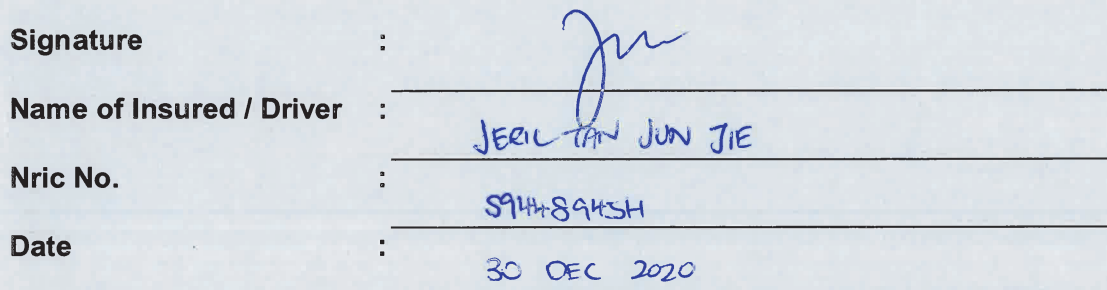 Signature :
Name of Insured / Driver :
JERIL TAN JUN JIE
Nric No. :
S9448945H
Date :
30 DEC 2020